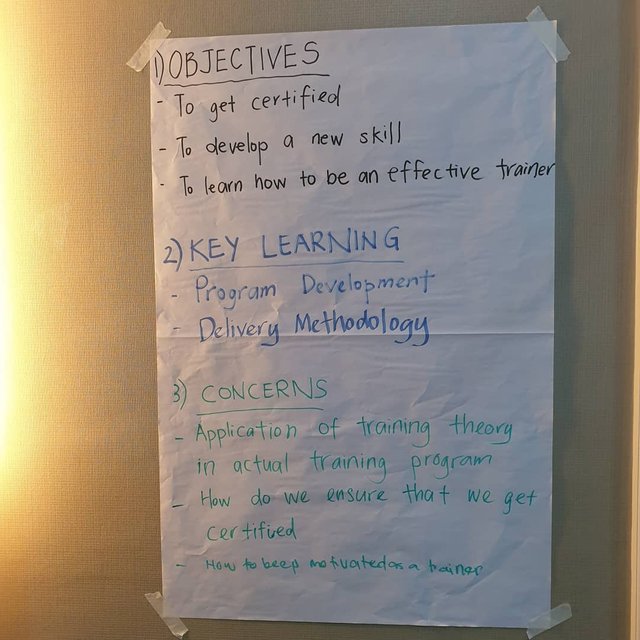 1) OBJECTIVES
- To get certified
- To develop a new skill
- To learn how to be an effective trainer
2) KEY LEARNING
- Program Development
- Delivery Methodology
3) CONCERNS
- Application of training theory
in actual training program
- How do we ensure that we get
certified
- How to keep motivated as a trainer